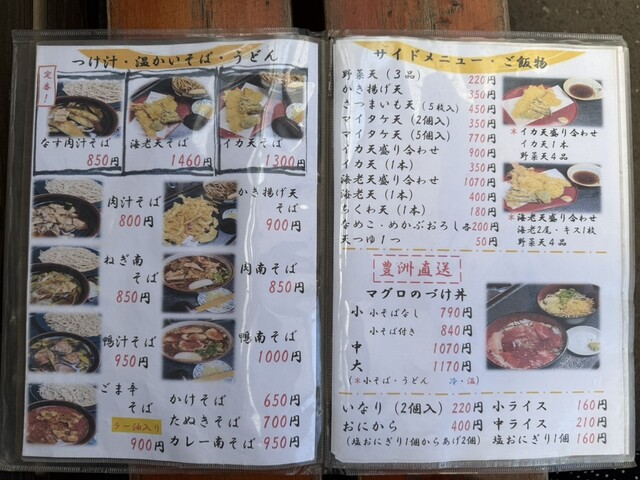 つけ汁・温かいそば・うどん
定番！
なす肉汁そば
850円
海老天そば
1460円
イカ天そば
1300円
肉汁そば
800円
かき揚げ天
そば
900円
ねぎ南
そば
850円
肉南そば
850円
鴨汁そば
950円
鴨南そば
1000円
ごま辛
そば
ラー油入り
900円
かけそば 650円
たぬきそば 700円
カレー南そば 950円
サイドメニュー・ご飯物
野菜天（3品） 220円
かき揚げ天 350円
さつまいも天（5枚入） 450円
マイタケ天（2個入） 350円
マイタケ天（5個入） 770円
イカ天盛り合わせ 900円
イカ天（1本） 350円
海老天盛り合わせ 1070円
海老天（1本） 400円
ちくわ天（1本） 180円
なめこ・めかぶおろし各200円
天つゆ1つ 50円
＊イカ天盛り合わせ
イカ天1本
野菜天4品
＊海老天盛り合わせ
海老2尾・キス1枚
野菜天4品
豊洲直送
マグロのづけ丼
小 小そばなし 790円
小そば付き 840円
中 1070円
大 1170円
（＊小そば・うどん 冷・温）
いなり（2個入）220円
おにから 400円
（塩おにぎり1個からあげ2個）
小ライス 160円
中ライス 210円
塩おにぎり1個 160円